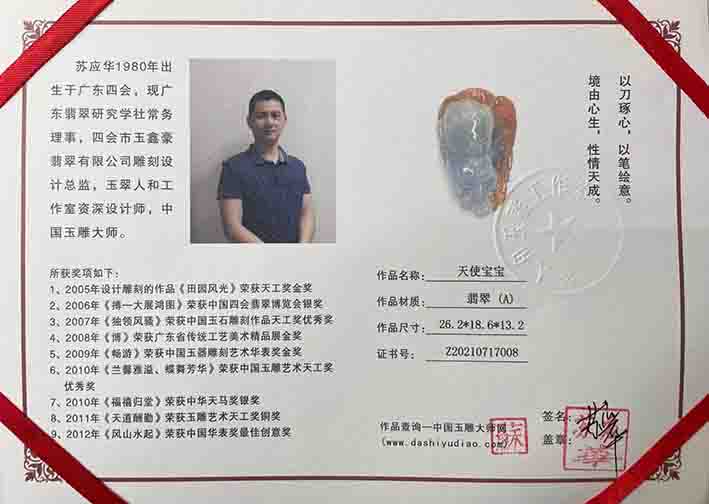 苏应华1980年出
生于广东四会，现广
东翡翠研究学社常务
理事，四会市玉鑫豪
翡翠有限公司雕刻设
计总监，玉翠人和工
作室资深设计师，中
国玉雕大师。
以刀琢心，以笔绘意。
境由心生，性情天成。
所获奖项如下：
1、2005年设计雕刻的作品《田园风光》荣获天工奖金奖
2、2006年《搏一大展鸿图》荣获中国四会翡翠博览会银奖
3、2007年《独领风骚》荣获中国玉石雕刻作品天工奖优秀奖
4、2008年《博》荣获广东省传统工艺美术精品展金奖
5、2009年《畅游》荣获中国玉器雕刻艺术华表奖金奖
6、2010年《兰馨雅溢、蝶舞芳华》荣获中国玉雕艺术天工奖
优秀奖
7、2010年《福禧归堂》荣获中华天马奖银奖
8、2011年《天道酬勤》荣获玉雕艺术天工奖铜奖
9、2012年《风山水起》荣获中国华表奖最佳创意奖
作品名称： 天使宝宝
作品材质： 翡翠（A）
作品尺寸： 26.2*18.6*13.2
证书号： Z20210717008
作品查询—中国玉雕大师网
（www.dashiyudiao.com）
签名：
盖章：